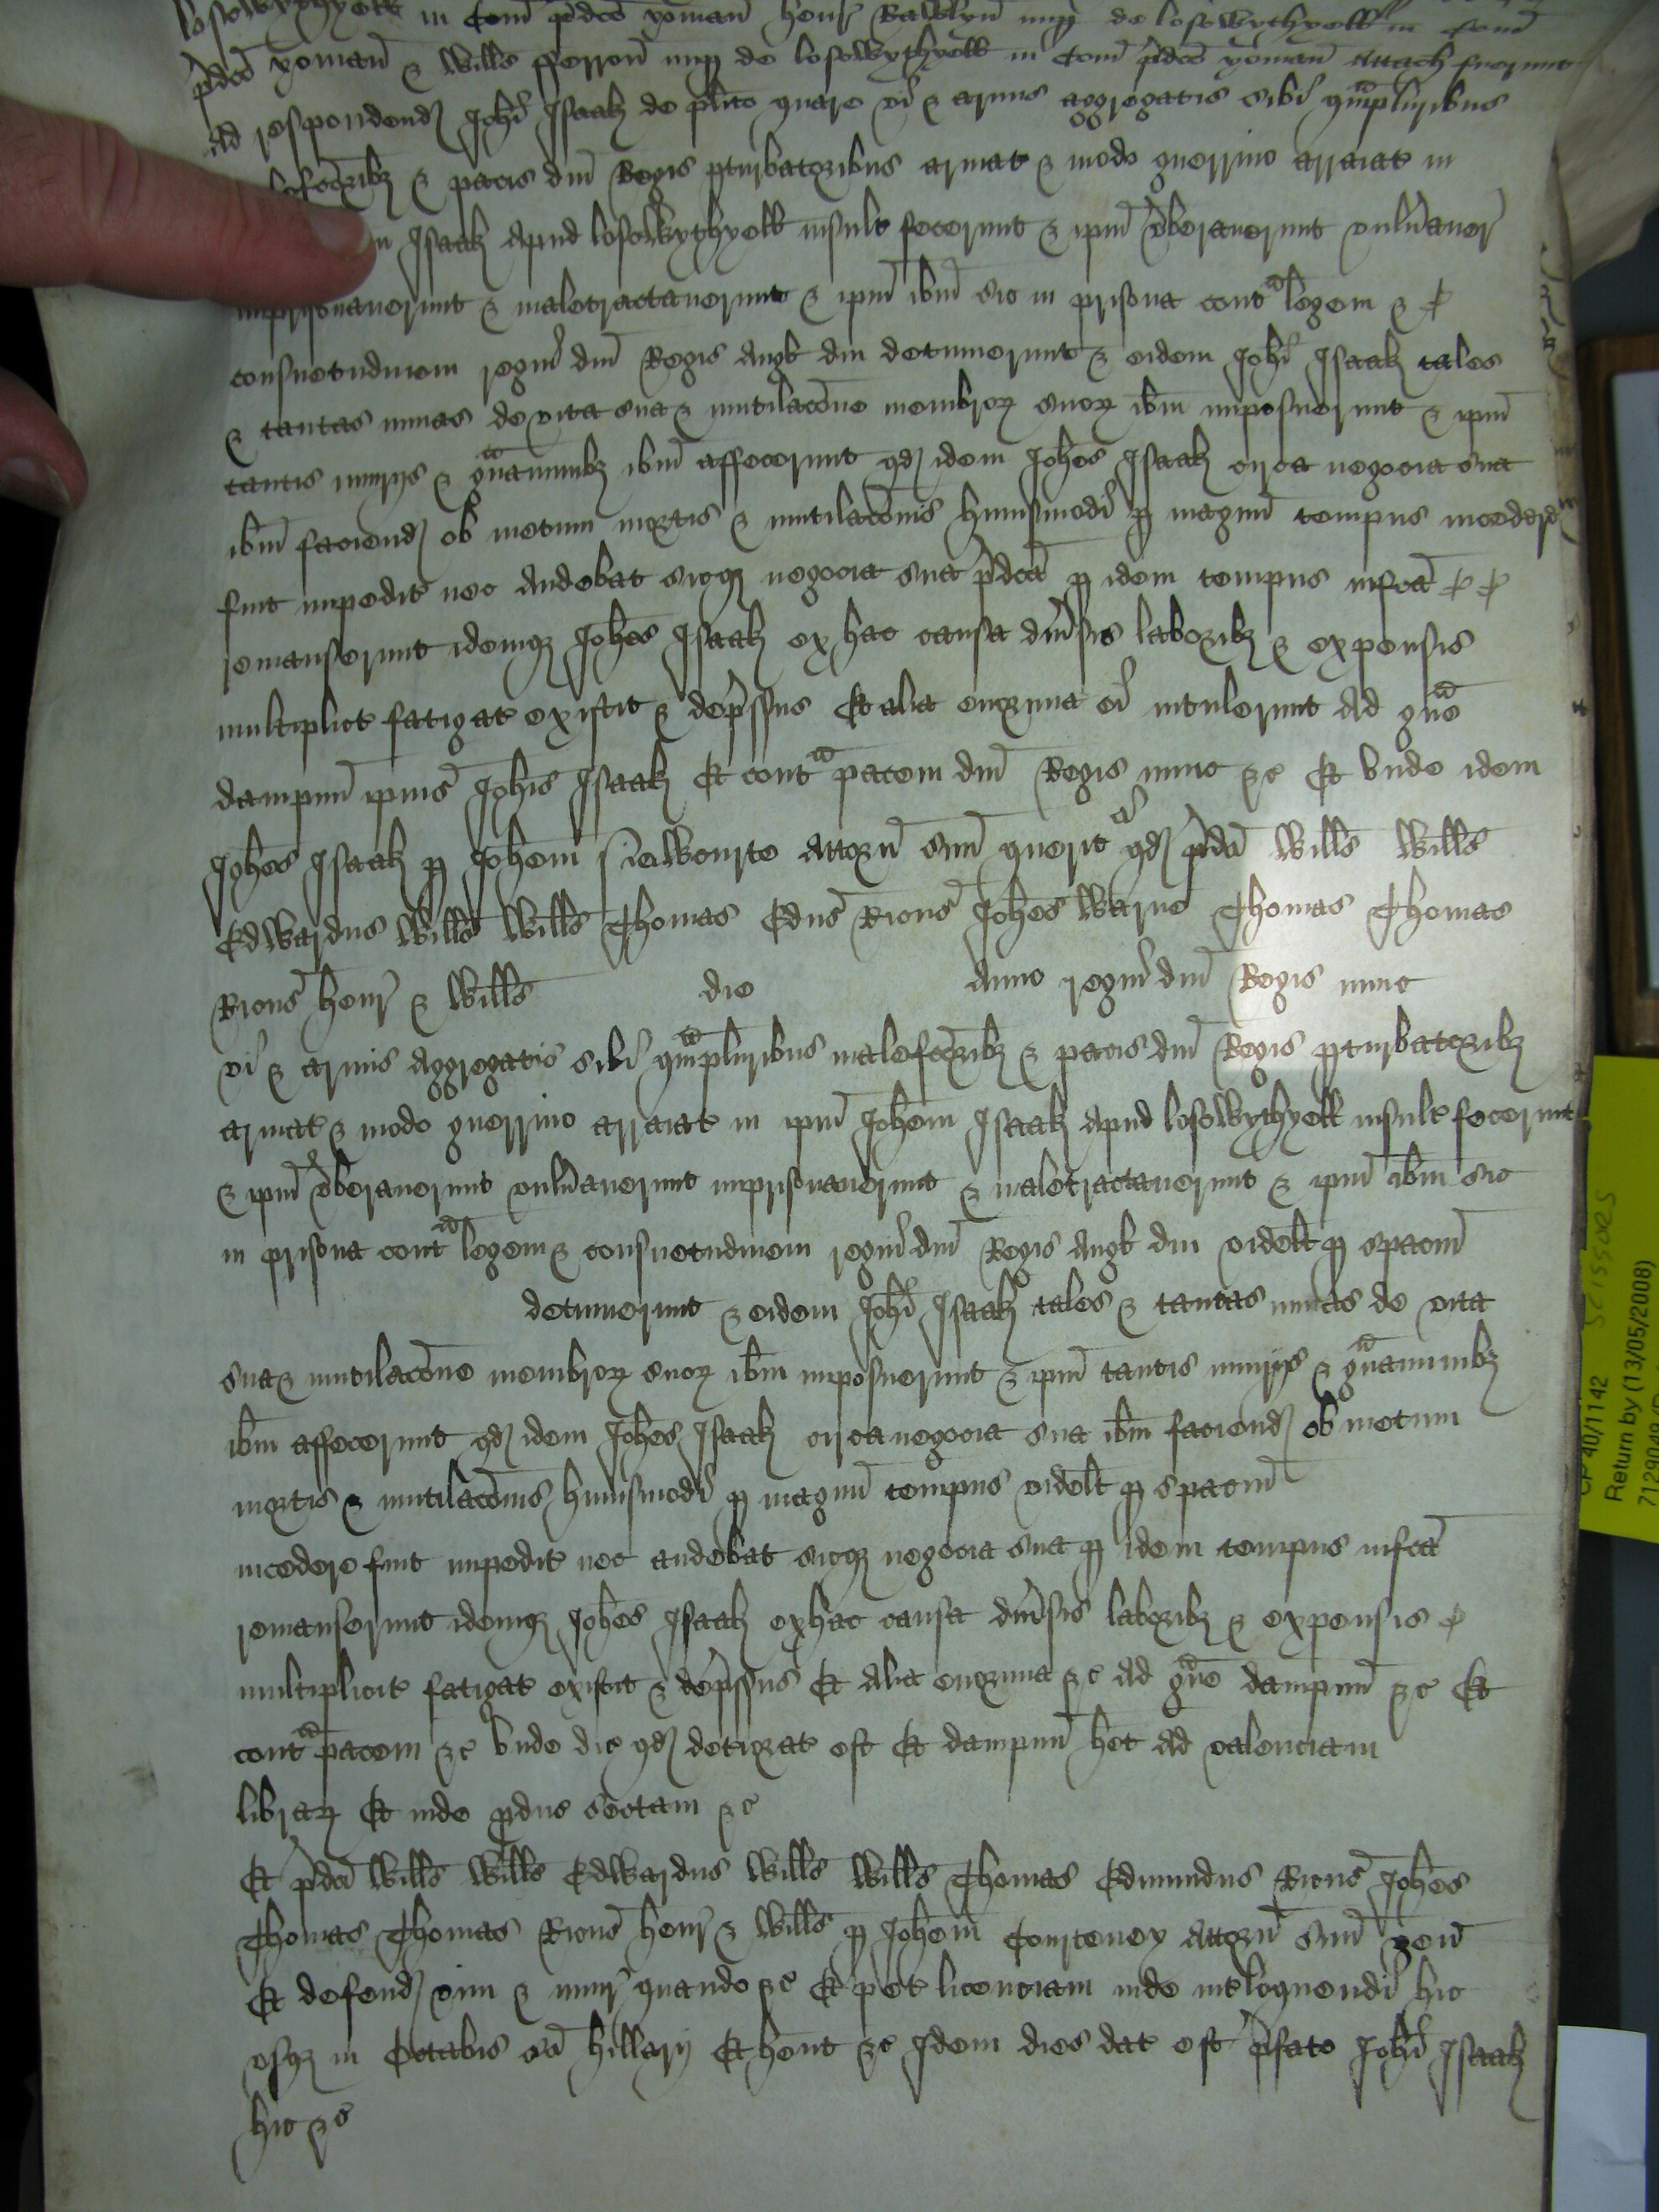 losowythyell in Com̄ p̄dco yoman̄ Henr̄ Rawlyn̄ nup̄ de losowythyell in Com̄
p̄dco yoman̄ & Witts fferron̄ nup̄ de losowythyell in Com̄ p̄dco yoman̄ attach fuerunt
ad respondend Joh̄i Isaak de pl̄ito quare vi & armis aggregatis sibi qmpluribus
fc̄oribȝ & pacis dn̄i Regis p̄turbatoribus armat & modo guerrino arraiat in
Isaak apud losowythyell insult fecerunt & ip̄m v̄beraverunt vuln̄aver̄
imprisonaverunt & maletractaverunt & ip̄m ib̄m sic in prisona contª legem &
consuetudinem regni dn̄i Regis Angł diu detinuerunt & eidem Joh̄i Isaak tales
& tantas minas de vita sua & mutilac̄one membroꝝ suoꝝ ib̄m imposuerunt & ip̄m
tantis iniurijs & gªuaminibȝ ib̄m affecerunt qd idem Joh̄es Isaak circa negocia sua
ib̄m faciend ob metum mortis & mutilac̄onis huiusmodi ꝑ magnū tempus incedere
fuit impedit nec audebat sicqȝ negocia sua p̄dca ꝑ idem tempus infc̄a
remanserunt idemqȝ Joh̄es Isaak ex hac causa diūsis laboribȝ & expensis
multiplicit fatigat existit & dep̄ssus Et alia enormia ei intulerunt Ad gªue
dampnū ip̄ius Joh̄is Isaak Et contª pacem dn̄i Regis nunc &c Et unde idem
Joh̄es Isaak ꝑ Joh̄em attorn̄ suū querit qd p̄dci Witts Witts
Edwardus Witts Witts Thomas Edus̄ Ricus̄ Joh̄es Warne Thomas Thomas
Ricus̄ Henr̄ & Witts die Anno regni dn̄i Regis nunc
vi & armis aggregatis sibi qmpluribus malefc̄oribȝ & pacis dn̄i Regis ꝑturbatoribȝ
armat & modo guerrino arraiat in ip̄m Joh̄em Isaak apud losowythyell insult fecerunt
& ip̄m v̄beraverunt vuln̄averunt imprisonaverunt & maletractaverunt & ip̄m ib̄m sic
in prisona contª legem & consuetudinem regni dn̄i Regis Angł diu videlt ꝑ spaciū
detinuerunt & eidem Joh̄i Isaak tales & tantas minas de vita
sua & mutilac̄one membroꝝ suoꝝ ib̄m imposuerunt & ip̄m tantis iniurijs & gªuaminibȝ
ib̄m affecerunt qd idem Joh̄es Isaak circa negocia sua ib̄m faciend ob metum
mortis & mutilac̄onis huiusmodi ꝑ magnū tempus videlt ꝑ spaciū
incedere fuit impedit nec audebat sicqȝ negocia sua ꝑ idem tempus infc̄a
remanserunt idemqȝ Joh̄es Isaak ex hac causa diūsis laboribȝ & expensis
multiplicit fatigat existit & dep̄ssus Et alia enormia &c Ad gªue dampnū &c Et
contª pacem &c unde dic qd deteriorat est Et dampnū het ad valenciam
libraꝝ Et inde ꝑduc sectam &c
Et p̄dci Witts Witts Edwardus Witts Witts Thomas Edmundus Ricus̄ Joh̄es
Thomas Thomas Ricus̄ Henr̄ & Witts ꝑ Joh̄em Courteney attorn̄ suū ven̄
Et defend vim & iniur̄ quando &c Et pet licenciam inde int̄loquendi hic
vsqȝ in Octabis sc̄i Hillarij Et hent &c Idem dies dat est p̄fato Joh̄i Isaak
hic &c
CP 40/1142 SCISSORS
Return by (13/05/2008)